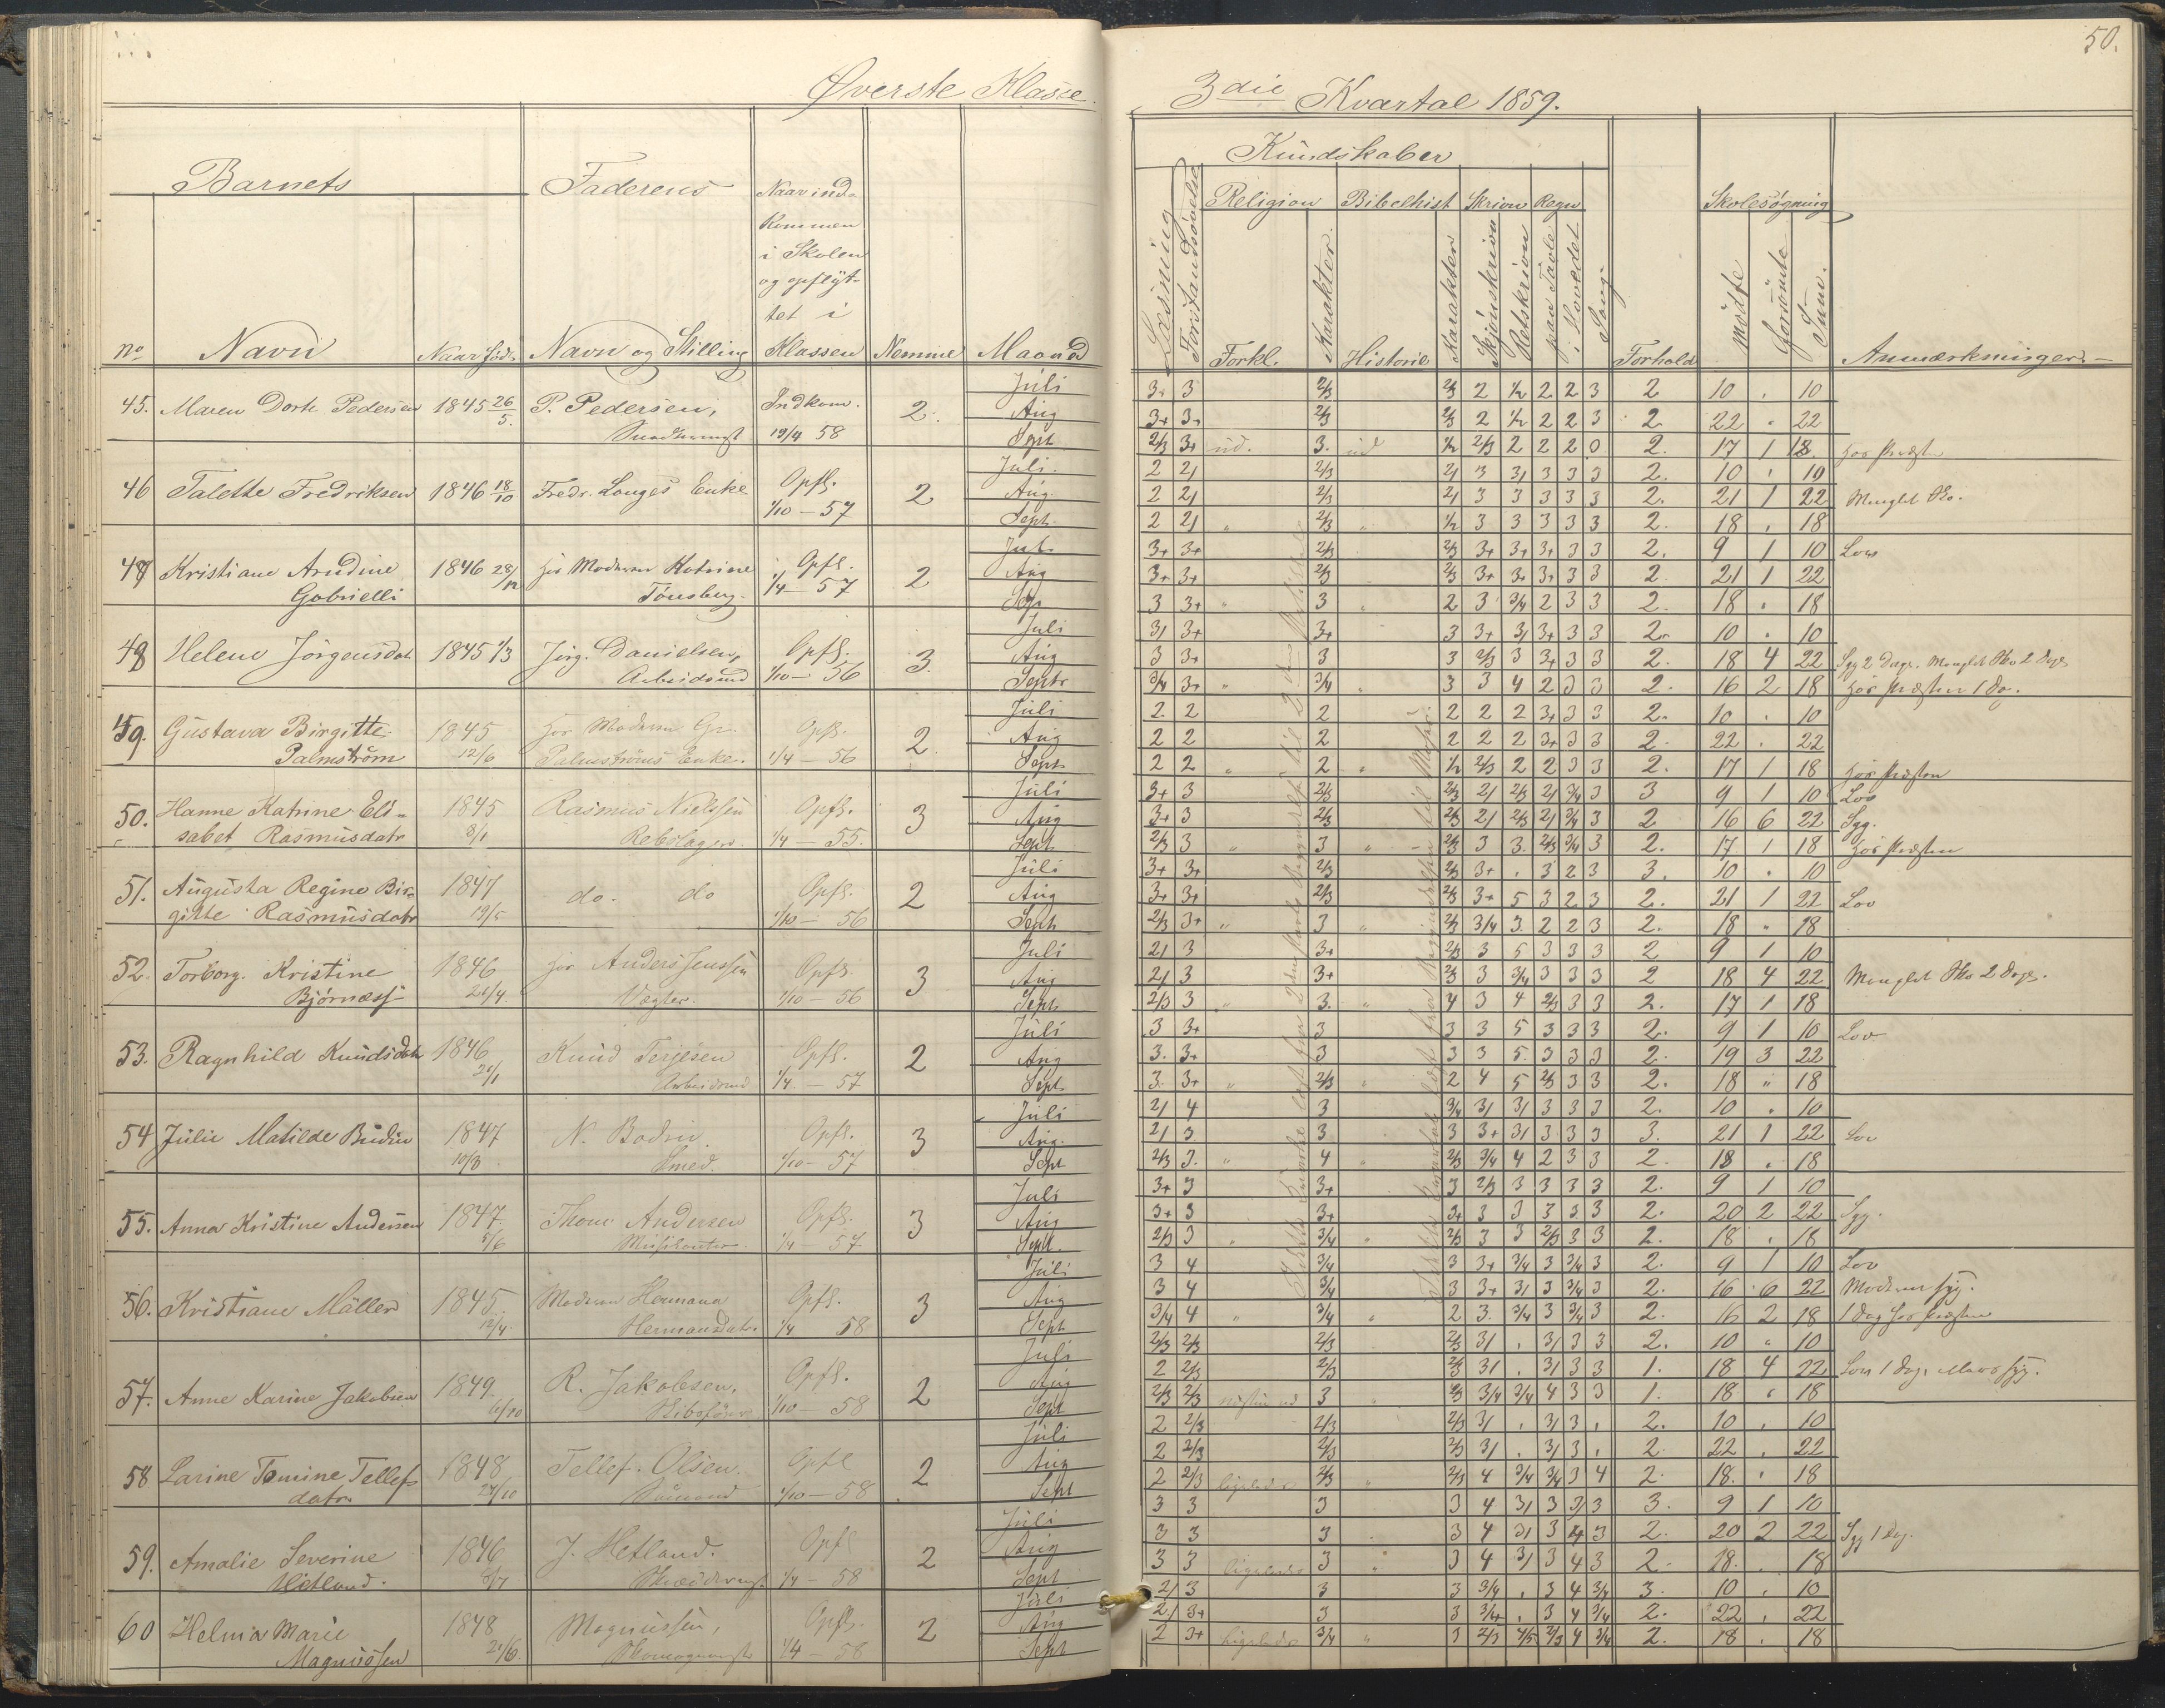 50.
Øverste Klasse. 3die Kvartal 1859.
Barnets Faderens Naar ind-
kommen
i Skolen
og opflyt-
tet i
No Navn Naar föd. Navn og Stilling Klassen Nemme Maaned
Kundskaber
Religion Bibelhist Skrivn Regn Skolesøgning
Læsning Forstandsøvelse Forkl. Karakter. Historie Karakter Skjönskrivn Retskrivn paa Tavle i Hovedet Sang Forhold Mödte Forsömte Sum. Anmærkninger.
45. Maren Dorth. Pedersen 1845 26/5. P. Pedersen, Indkom. 19/4 58 2.
Juli 3+ 3 2/3 2/3 2 1/2 2 2 3 2 10 . 10
Aug 3+ 3+ 2/3 2/3 2 1/2 2 2 3 2. 22 . 22
Sept 2/3 3+ ud. 3. ud 1/2 2/3 2 2 2 0 2. 17 1 18 hos Præsten
46 Talette Fredriksen 1846 18/10 Fredr. Longes Enke Opfl. 1/10 - 57 2
Juli. 2 2/ 2/3 2/ 3 3/ 3 3 3 2. 10 . 10
Aug. 2 2/ 2/3 2/ 3 3 3 3 3 2. 21 1 22 Manglet Sko.
Sept. 2 2/ " 2/3 " 1/2 3 3 3 3 3 2. 18 . 18
47 Kristiane Arndine Gabrielli 1846 28/12 hos Moderen Katrine Tönsberg. Opfl. 1/4 - 57 2
Juli 3+ 3+ 2/3 2/3 3+ 3+ 3+ 3 3 2. 9 1 10 Lov
Aug 3+ 3+ 2/3 2/3 3+ 3+ 3+ 3 3 2. 21 1 22
Sep 3 3+ " 3 " 2 3 3/4 2 3 3 2. 18 . 18
48 Helene Jörgensdat 1845 1/3 Jörg. Danielsen, Arbeidsmd Opfl. 1/10 - 56 3.
Juli 3/ 3+ 3+ 3 3+ 3/ 3+ 3 3 2. 10 . 10
Aug 3 3+ 3 3 2/3 3 3+ 3 3 2. 18 4 22 Syg 2 Dage. Manglet Sko 2 Dage
Septr 3/4 3+ " 3/4 " 3 3 4 2 3 3 2. 16 2 18 hos Præsten 1 Dag.
49. Gustava Birgitte Palmström 1845 12/6 hos Moderen Gr. Palmströms Enke. Opfl. 1/4 - 56 2.
Juli 2. 2 2 2 2 2 3+ 3 3 2. 10 . 10
Aug 2 2 2 2 2 2 3+ 3 3 2. 22 . 22
Sept 2 2 " 2 " 1/2 2/3 2 2 3 3 2. 17 1 18 hos Præsten
50. Hanne Katrine Eli-
sabet Rasmusdatr 1845 8/1 Rasmus Nielssen Rebslager. Opfl. 1/4 - 55. 3
Juli 3+ 3 2/3 2/3 2/ 2/3 2/ 3/4 3 3 9 1 10 Lov
Aug 3+ 3 2/3 2/3 2/ 2/3 2/ 3/4 3 2 16 6 22 Syg.
Sept 2/3 3 " 3 " 2/3 3 3. 2/3 3/4 3 2. 17 1 18 hos Præsten
51. Augusta Regine Bir-
gitte Rasmusdatr 1847 19/5 do. do Opfl. 1/10 - 56 2
Juli 3+ 3+ 2/3 2/3 3+ . 3 2 3 3. 10 . 10
Aug 3+ 3+ 2/3 2/3 3+ 5 3 2 3 2. 21 1 22 Lov
Sept 2/3 3+ " 3 " 2/3 3/4 3. 2 2 3 2. 18 " 18
52. Torborg. Kristine Björnæs 1846 21/4. hos Anders Jenssen Vægter. Opfl. 1/10 - 56 3
Juli 2/ 3 3+ 2/3 3 5 3 3 3 2 9 1 10
Aug 2/ 3 3+ 2/3 3 3/4 3 3 3 2 18 4 22 Manglet Sko 2 Dage.
Sept 2/3 3 " 3. " 4 3 4 2/3 3 3 2. 17 1 18
53. Ragnhild Knudsdatr 1846 20/1 Knud Terjesen Arbeidsmd Opfl. 1/4 - 57 2
Juli 3 3+ 3 3 3 5 3 3 3 2. 9 1 10 Lov
Aug 3. 3+ 3 3 3 5. 3 3 3 2. 19 3 22
Sept 3. 3+ " 2/3 " 2 4 5 2/3 3 3 2. 18 " 18
54 Julie Matilde Budin 1847 10/8 N. Bodin Smed. Opfl. 1/10 - 57 3
Juli 2/ 4 3 3/4 3/ 3/ 3 3 3 2. 10 . 10
Aug. 2/ 3 3 3 3+ 3/ 3 3 3 3. 21 1 22 Lov
Sept 2/3 3. " 4 " 2/3 3/4 4 2 3 3 2. 18 . 18
55. Anna Kristine Andersen 1847 5/6 Thom. Andersen Musikanter Opfl. 1/4 - 57 3
Juli 3+ 3 3+ 3 2/3 3 3 3 3 2. 9 1 10
Aug 3+ 3 3+ 3+ 3 3 3 3 3 2. 20 2 22 Syg.
Sept. 2/3 3 " 3/4 " 2/3 3 3 2/3 3 3 2. 18 . 18
56. Kristiane Möller 1845 12/4. Moderen Hermana Hermansdatr. Opfl. 1/4 58 3
Juli 3 4 3/4 3 3+ 3/4 3 3/4 3 2. 9 1 10 Lov
Aug 3 4 3/4 3 3+ 3/ 3 3/4 3 2. 16 6 22 Moderen syg.
Sept 3/4 4 " 3/4 " 2 3. 3/4 3 3/4 3 2. 16 2 18 1 Dag hos Præsten
57. Anne Karine Jakobsen 1849 6/10 R. Jakobsen, Skibsförer Opfl. 1/10 - 58 2
Juli 2/3 2/3 2/3 2/3 3/ . 3/ 3 3 2. 10 " 10
Aug 2 2/3 2/3 2/3 3/ . 3/ 3 3 1. 18 4 22 Lov 1 Dag.
Sept 2/3 2/3 næsten ud 3 " 2/3 3/4 3/4 4 3 3 1. 18 . 18
58 Larine Tomine Tellefs
datr. 1848 24/10 Tellef. Olsen. Sömand Opfl 1/10 - 58 2
Juli 2 2/3 2/3 2/3 3/ . 3/ 3 . 2. 10 . 10
Aug 2 2/3 2/3 2/3 3/ . 3/ 3 . 2 22 . 22
Sept 2 2/3 ligeledes 2/3 " 2/3 4 3/4 3/4 3 4 2. 18. . 18
59. Amalie Severine Hetland. 1846 5/7 J. Hetland. Opfl 1/4 - 58 2
Juli 3 3 3 3 4 3/ 3 3/ 3 3. 9 1 10
Aug 3 3 3 3 4 3/ 3 4 3 2. 20 2 22 Syg 1 Dag.
Sept 3 3 ligeledes 3 " 3 4 3/ 3 4 3 2. 18. . 18
60 Helma Marie Magnussen 1848 21/6. Magnussen, Opfl. 1/4 - 58 2
Juli 2/ 3 3 3 3/4 . 3 4 3/4 3. 10 . 10
Aug 2/ 3+ 3 3 3/4 . 3 4 3/4 2. 22 . 22
Sept 2 3+ Ligeledes 3/4 " 3 2/3 4/5 2/3 4 3/4 2. 18 . 18